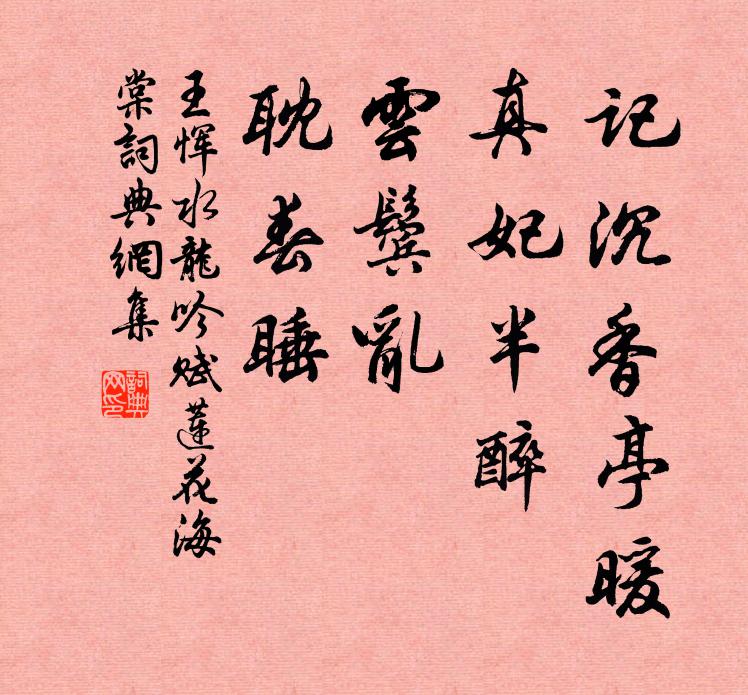 记沉香亭暖
真妃半醉
雲鬓亂
耽春睡
王恽水龍吟赋蓮花海
棠詞典網集
詞典网印